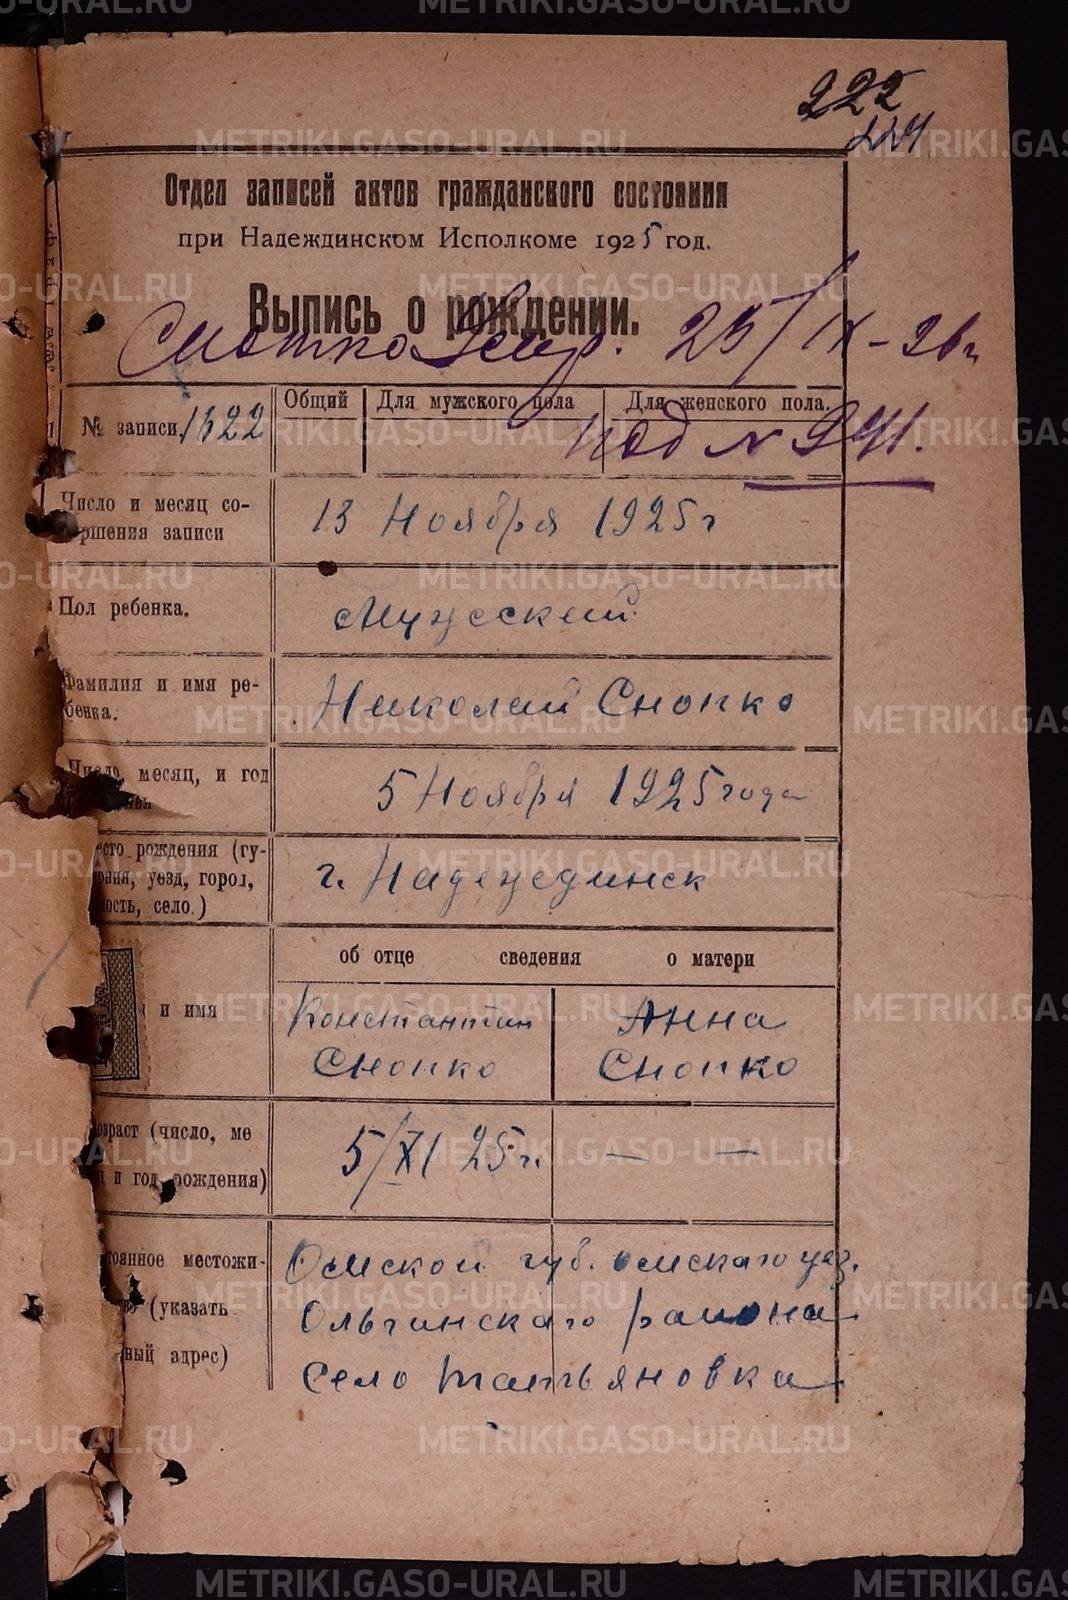 222
224
Отдел записей актов гражданского состояния
при Надеждинском Исполкоме 1925 год.
Выпись о рождении.
25/IX-26 г
№ записи 1622
Общий
Для мужского пола
Для женского пола.
под № 941.
Число и месяц со-
ршения записи
13 Ноября 1925 г
Пол ребенка.
Мужской
Фамилия и имя ре-
бенка.
Николай Снопко
Число, месяц, и год
5 Ноября 1925 года
есто рождения (гу-
рния, уезд, город,
ость, село.)
г. Надеждинск
об отце сведения о матери
и имя
Константин
Снопко
Анна
Снопко
озраст (число, ме
ц и год рождения)
5/XI 25 г. — —
тоянное местожи-
(указать
ный адрес)
Омской губ. омскаго уез.
Ольгинскаго района
село Татьяновка
METRIKI.GASO-URAL.RU